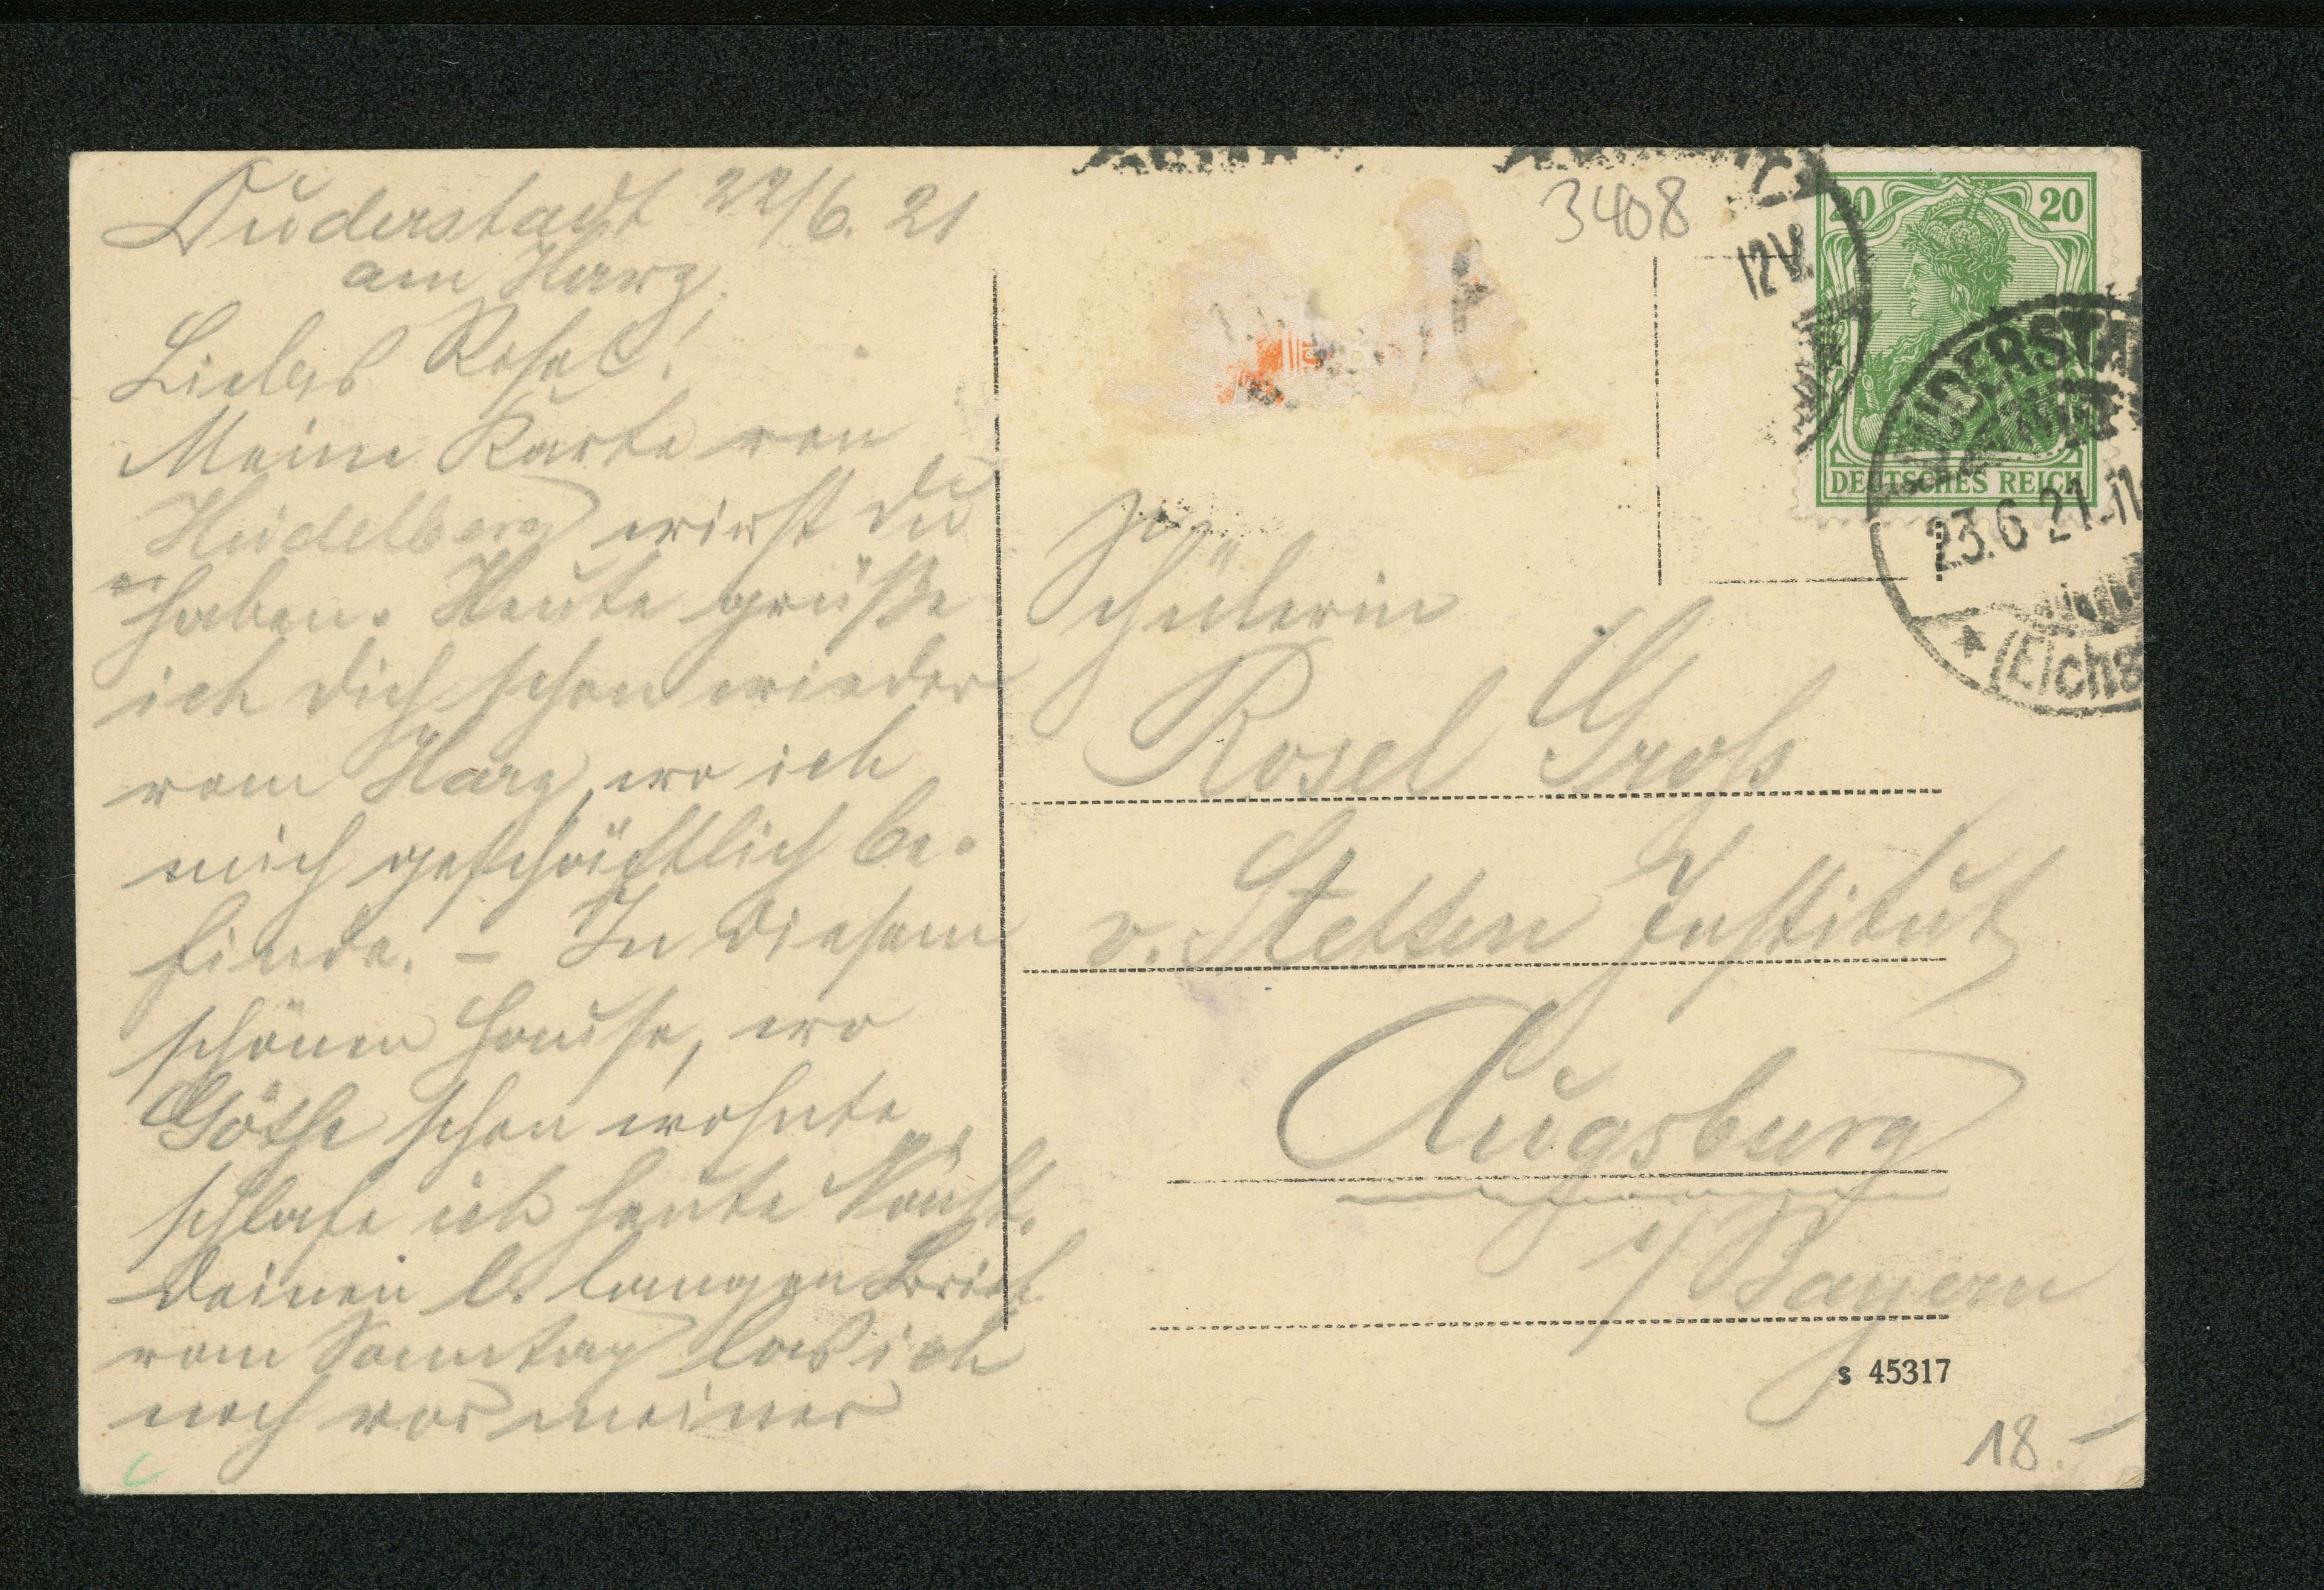 Duderstadt 22/6. 21
am Harz.
Liebes Rosel!
Meine Karte von
Heidelberg wirst Du
haben. Heute grüße
ich Dich schon wieder
vom Harz, wo ich
mich geschäftlich be-
finde. – In diesem
schönen Hause, wo
Göthe schon wohnte
schlafe ich heute Nacht.
Deinen l. langen Brief
vom Sonntag las ich
noch vor meiner
3408
20 20
DEUTSCHES REICH
12 V.
DUDERSTA
23.6 21.11
* (Eichs
Schülerin
Rosel Groß
v. Stetten Institut
Augsburg
i/ Bayern
s 45317
18.–